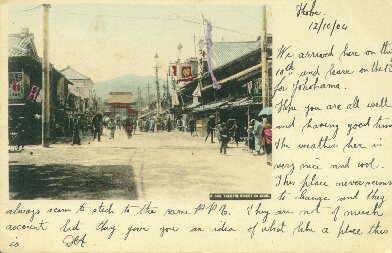 Kobe.
12/10/04
We arrived here on the
10th and leave on the 13
for Yokohama.
Hope you are all well
and having good time
The weather here is
very nice and cool.
This place never seems
to change and they
always seem to stick to the same P.P.C. They are not of much
account but they give you an idea of what like a place this
is
THEATRE STREET KOBE